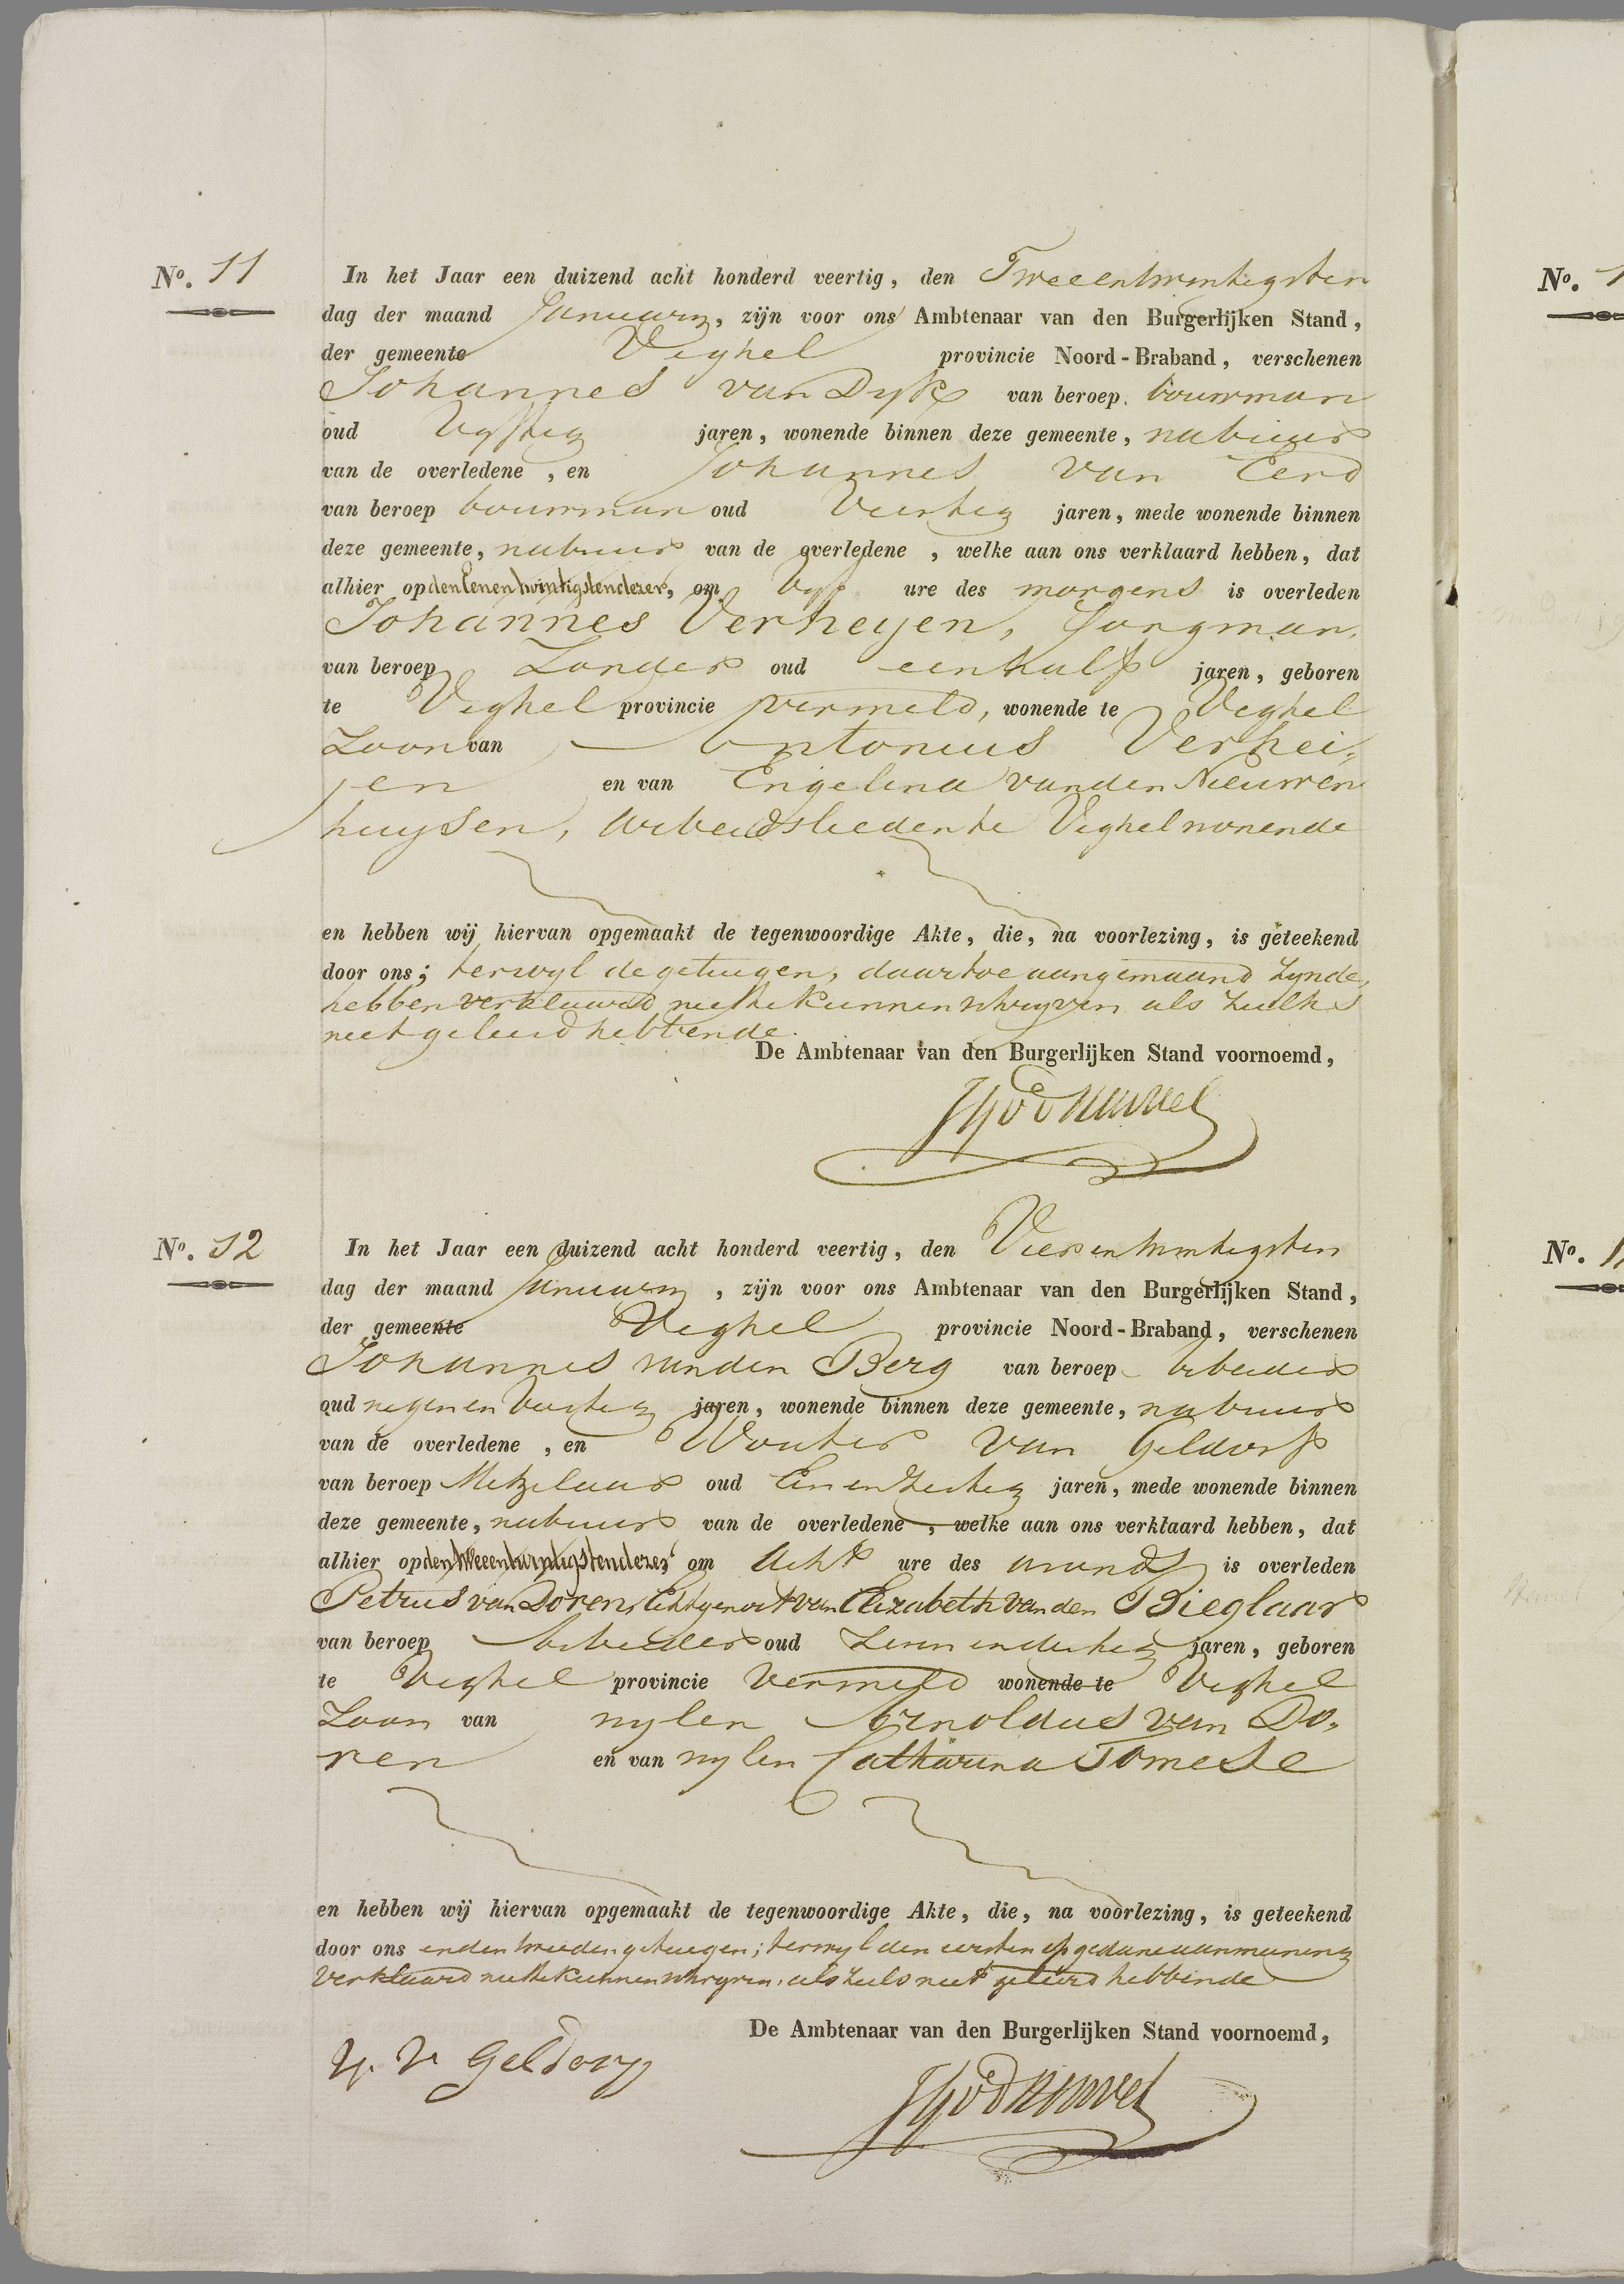 No. 11
In het Jaar een duizend acht honderd veertig, den Tweeentwintigsten
dag der maand January, zijn voor ons Ambtenaar van den Burgerlijken Stand,
der gemeente Veghel provincie Noord-Braband, verschenen
Johannes van Dyk van beroep bouwman
oud Vyftig jaren, wonende binnen deze gemeente, nabuur
van de overledene, en Johannes van Eerd
van beroep bouwman oud Veertig jaren, mede wonende binnen
deze gemeente, nabuur van de overledene, welke aan ons verklaard hebben, dat
alhier op den Eenentwintigsten dezer, om Vyf ure des morgens is overleden
Johannes Verheyen, Jongman,
van beroep Zonder oud eenhalf jaren, geboren
te Veghel provincie vermeld, wonende te Veghel
Zoon van Antonius Verhei,
jen en van Engelina van den Nieuwen
huysen, Arbeidslieden te Veghel wonende
en hebben wij hiervan opgemaakt de tegenwoordige Akte, die, na voorlezing, is geteekend
door ons; terwyl de getuigen, daartoe aangemaand zynde,
hebben verklaard niet te kunnen schryven als zulks
niet geleerd hebbende.
De Ambtenaar van den Burgerlijken Stand voornoemd,
No. 12
In het Jaar een duizend acht honderd veertig, den Vierentwintigsten
dag der maand January, zijn voor ons Ambtenaar van den Burgerlijken Stand,
der gemeente Veghel provincie Noord-Braband, verschenen
Johannes van den Berg van beroep Arbeider
oud negen en Veertig jaren, wonende binnen deze gemeente, nabuur
van de overledene, en Wouter van Geldorp
van beroep Metzelaar oud Een en Zestig jaren, mede wonende binnen
deze gemeente, nabuur van de overledene, welke aan ons verklaard hebben, dat
alhier op den tweeentwintigsten dezer, om Acht ure des avonds is overleden
Petrus van Doren, Echtgenoot van Elizabeth van den Bieglaar
van beroep Arbeider oud Zeven en dertig jaren, geboren
te Veghel provincie Vermeld wonende te Veghel
Zoon van wylen Arnoldus van Do,
ren en van wylen Catharina Tomese
en hebben wij hiervan opgemaakt de tegenwoordige Akte, die, na voorlezing, is geteekend
door ons en den tweeden getuigen; terwyl den eersten op gedane aanmaning
verklaard niet te kunnen schryven, als zulks niet geleerd hebbende
De Ambtenaar van den Burgerlijken Stand voornoemd,
W. V Geldorp
No. 1
No. 1